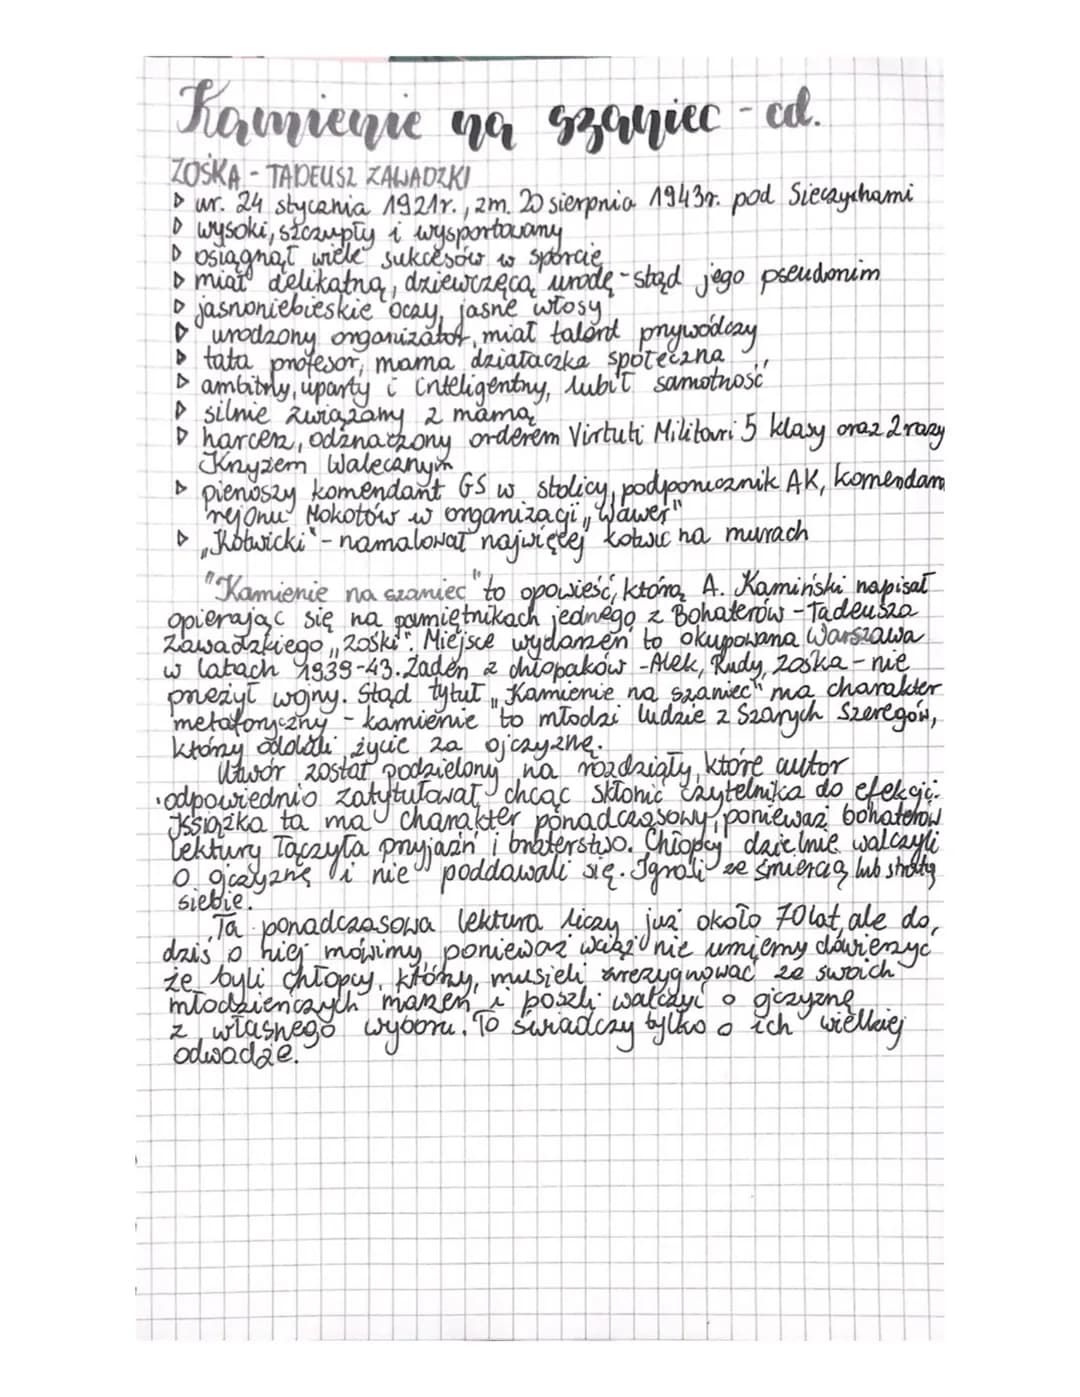 Kamienie na szaniec - cd.
ZOŚKA - TADEUSZ ZAWADZKI
▷ ur. 24 stycznia 1921r., zm. 20 sierpnia 1943r. pod Sieczychami
▷ wysoki, szczupły i wysportowany
▷ osiągnął wiele sukcesów w sporcie
▷ miał delikatną, dziewczęcą urodę - stąd jego pseudonim
▷ jasnoniebieskie oczy, jasne włosy
▷ urodzony organizator, miał talent przywódczy
▷ tata profesor, mama działaczka społeczna
▷ ambitny, uparty i inteligentny, lubił samotność
▷ silnie związany z mamą
▷ harcerz, odznaczony orderem Virtuti Militari 5 klasy oraz 2 razy
Krzyżem Walecznym
▷ pierwszy komendant GS w stolicy, podporucznik AK, komendan
rejonu Mokotów w organizacji „Wawer"
▷ „Kotwicki" - namalował najwięcej kotwic na murach
"Kamienie na szaniec" to opowieść, którą A. Kamiński napisał
opierając się na pamiętnikach jednego z Bohaterów - Tadeusza
Zawadzkiego „Zośki". Miejsce wydarzeń to okupowana Warszawa
w latach 1939-43. Żaden z chłopaków - Alek, Rudy, Zośka - nie
przeżył wojny. Stąd tytuł „Kamienie na szaniec" ma charakter
metaforyczny - kamienie to młodzi ludzie z Szarych Szeregów,
którzy oddali życie za ojczyznę.
Utwór został podzielony na rozdziały, które autor
odpowiednio zatytułował chcąc skłonić czytelnika do efekcji.
Książka ta ma charakter ponadczasowy, ponieważ bohaterów
lektury łączyła przyjaźń i braterstwo. Chłopcy dzielnie walczyli
o ojczyznę i nie poddawali się. Igrali ze śmiercią lub stratą
siebie.
Ta ponadczasowa lektura liczy już około 70 lat, ale do
dziś o niej mówimy ponieważ wciąż nie umiemy dowierzyć
że byli chłopcy, którzy musieli zrezygnować ze swoich
młodzieńczych marzeń i poszli walczyć o ojczyznę
z własnego wyboru. To świadczy tylko o ich wielkiej
odwadze.